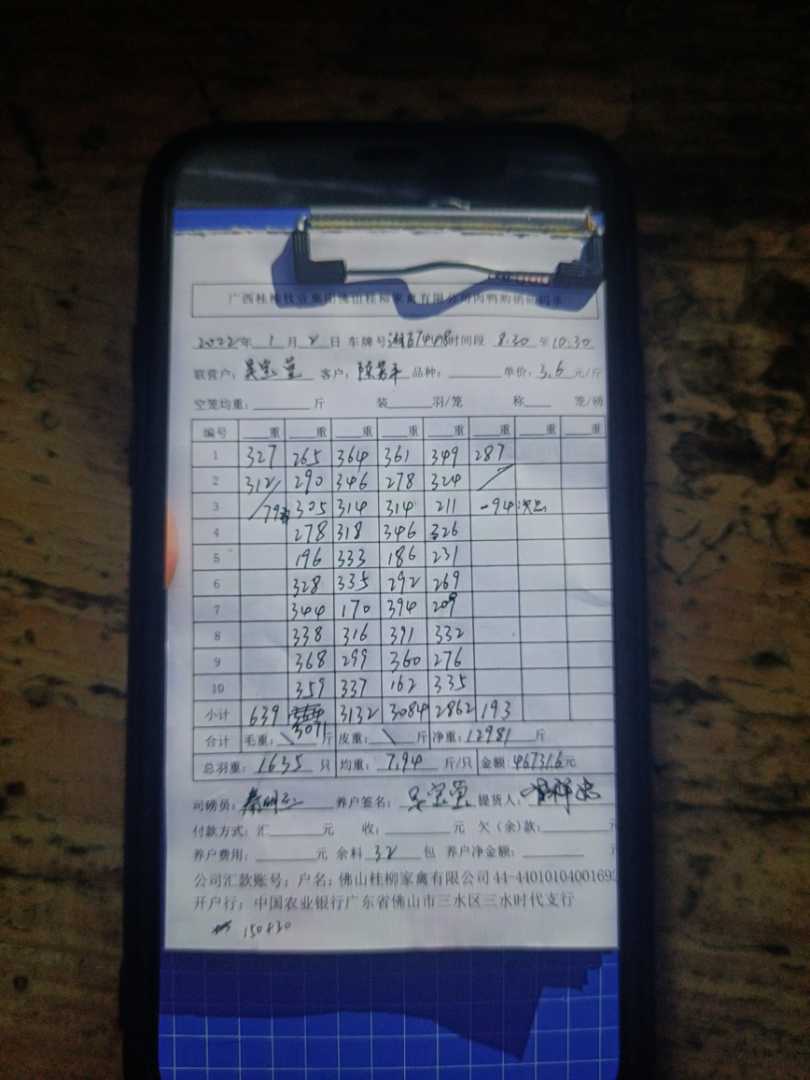 2022年 1 月 2 日 车牌号 时间段 8.30 至 10.30
联营户: 吴 客户: 陈 平 品种: 单价: 3.6 元/斤
空笼均重: 斤 装 羽/笼 称 笼/磅
编号 重 重 重 重 重 重 重 重
1 327 265 364 361 349 287
2 312 290 346 278 324
3 305 314 314 211 -94
4 278 318 346 326
5 196 333 186 231
6 328 335 292 269
7 344 170 394 209
8 338 316 391 332
9 368 299 360 276
10 359 337 162 335
小计 639 3071 3132 3084 2862 193
合计 毛重: 斤 皮重: 斤 净重: 12981 斤
总羽重: 1635 只 均重: 7.94 斤/只 金额: 46731.6元
司磅员: 养户签名: 吴 提货人:
付款方式: 汇 元 收: 元 欠(余)款:
养户费用: 元 余料 32 包 养户净金额:
公司汇款账号; 户名: 佛山桂柳家禽有限公司 44-440101040016
开户行: 中国农业银行广东省佛山市三水区三水时代支行
150830